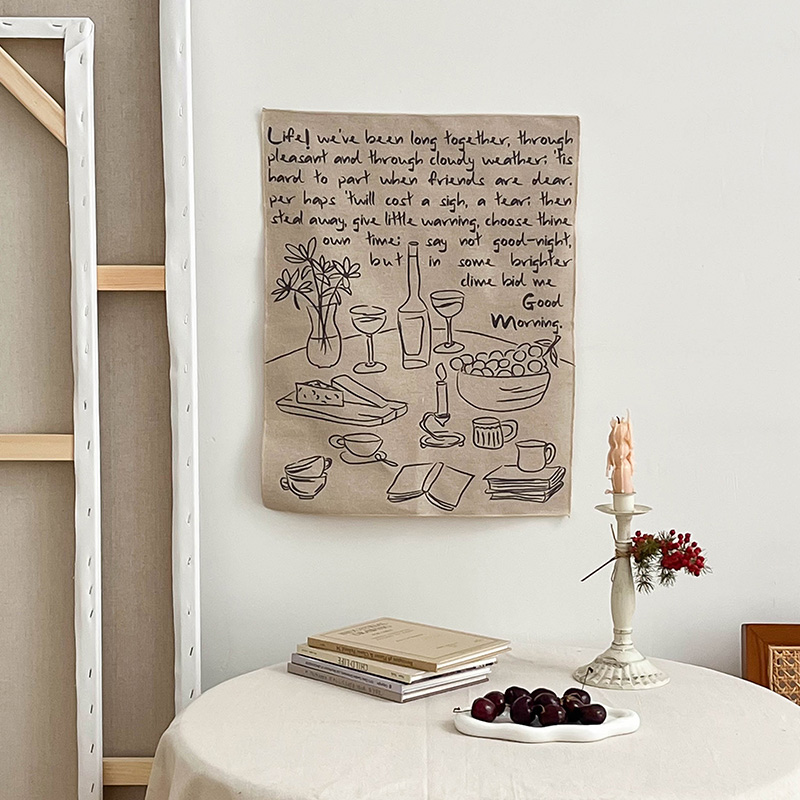 Life! we've been long together, through
pleasant and through cloudy weather; 'tis
hard to part when friends are dear.
per haps 'twill cost a sigh, a tear; then
steal away, give little warning, choose thine
own time; say not good-night,
but in some brighter
clime bid me
Good
Morning.
CHILD-LIFE